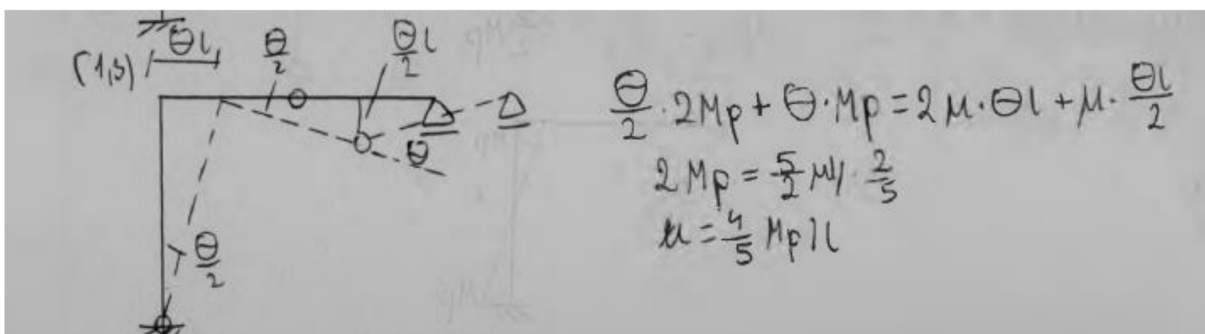 (1,3)
Θl
Θ/2
Θl/2
Θ
Θ/2
Θ/2 · 2Mp + Θ · Mp = 2μ · Θl + μ · Θl/2
2Mp = 5/2 μl · 2/5
μ = 4/5 Mp/l